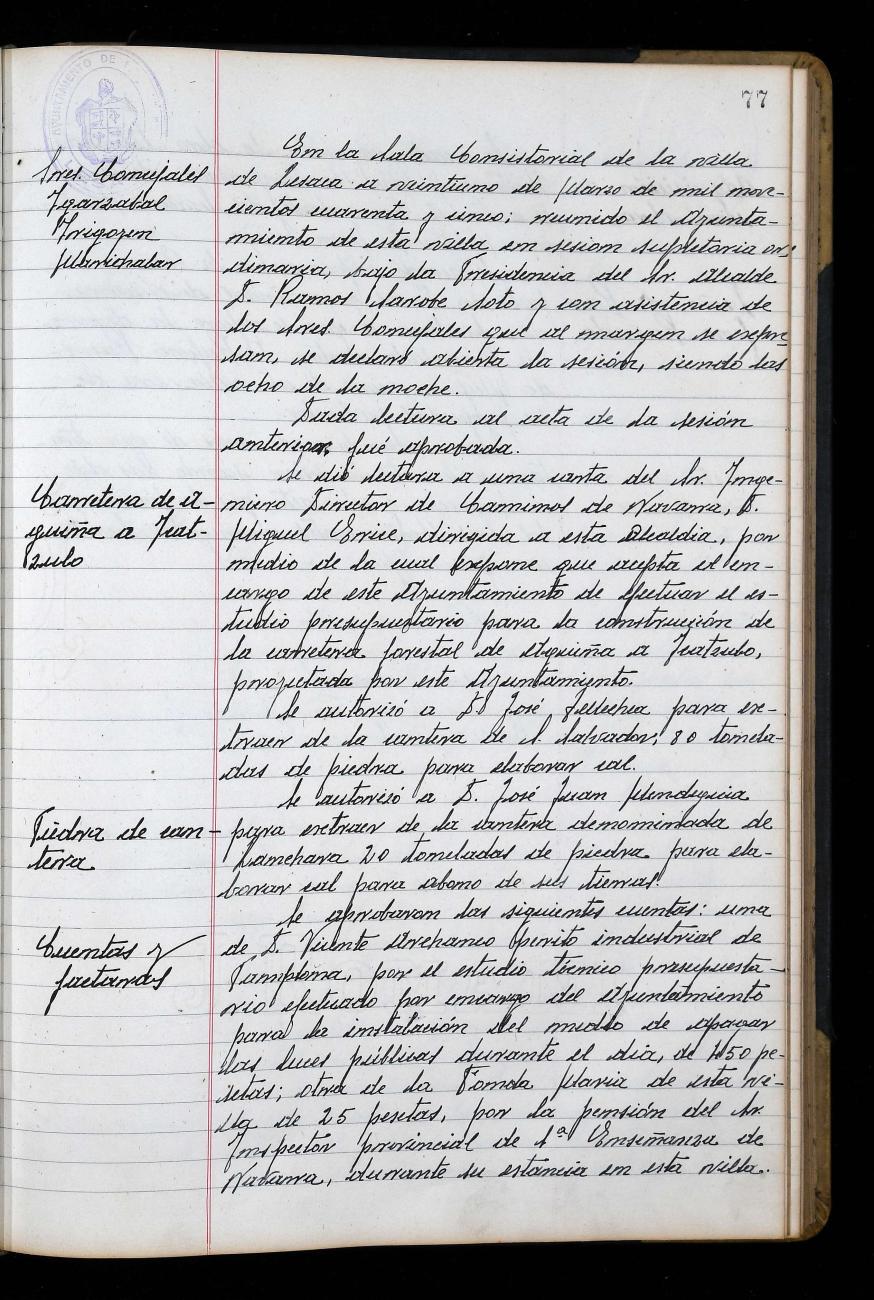 77
AYUNTAMIENTO DE
Sres. Concejales
Igarzabal
Irigoyen
Marichalar
En la Sala Consistorial de la villa
de Lesaca a veintiuno de Marzo de mil nove-
cientos cuarenta y cinco; reunido el Ayunta-
miento de esta villa en sesion supletoria or-
dinaria, bajo la Presidencia del Sr. Alcalde
D. Ramos Sarobe Soto y con asistencia de
los Sres. Concejales que al margen se expre
san, se declaró abierta la sesión, siendo las
ocho de la noche.
Dada lectura al acta de la sesión
anterior, fué aprobada.
Carretera de A-
guiña a Jeat-
zulo
Se dió lectura a una carta del Sr. Inge-
niero Director de Caminos de Navarra, D.
Miguel Erice, dirigida a esta Alcaldia, por
medio de la cual expone que acepta el en-
cargo de este Ayuntamiento de efectuar el es-
tudio presupuestario para la construcción de
la carretera forestal de Aguiña a Jeatzulo,
proyectada por este Ayuntamiento.
Se autorizó a D. José Tellechea para ex-
traer de la cantera de S. Salvador, 80 tonela-
das de piedra para elaborar cal.
Piedra de can-
tera
Se autorizó a D. José Juan Mendeguia
para extraer de la cantera denominada de
20 toneladas de piedra para ela-
borar cal para abono de sus tierras.
Cuentas y
facturas
Se aprobaron las siguientes cuentas: una
de D. Vicente Archanco perito industrial de
Pamplona, por el estudio técnico presupuesta-
rio efectuado por encargo del Ayuntamiento
para la instalación del medio de apagar
las luces públicas durante el dia, de 150 pe-
setas; otra de la Fonda Maria de esta vi-
lla de 25 pesetas, por la pensión del Sr.
Inspector provincial de 1ª Enseñanza de
Navarra, durante su estancia en esta villa.